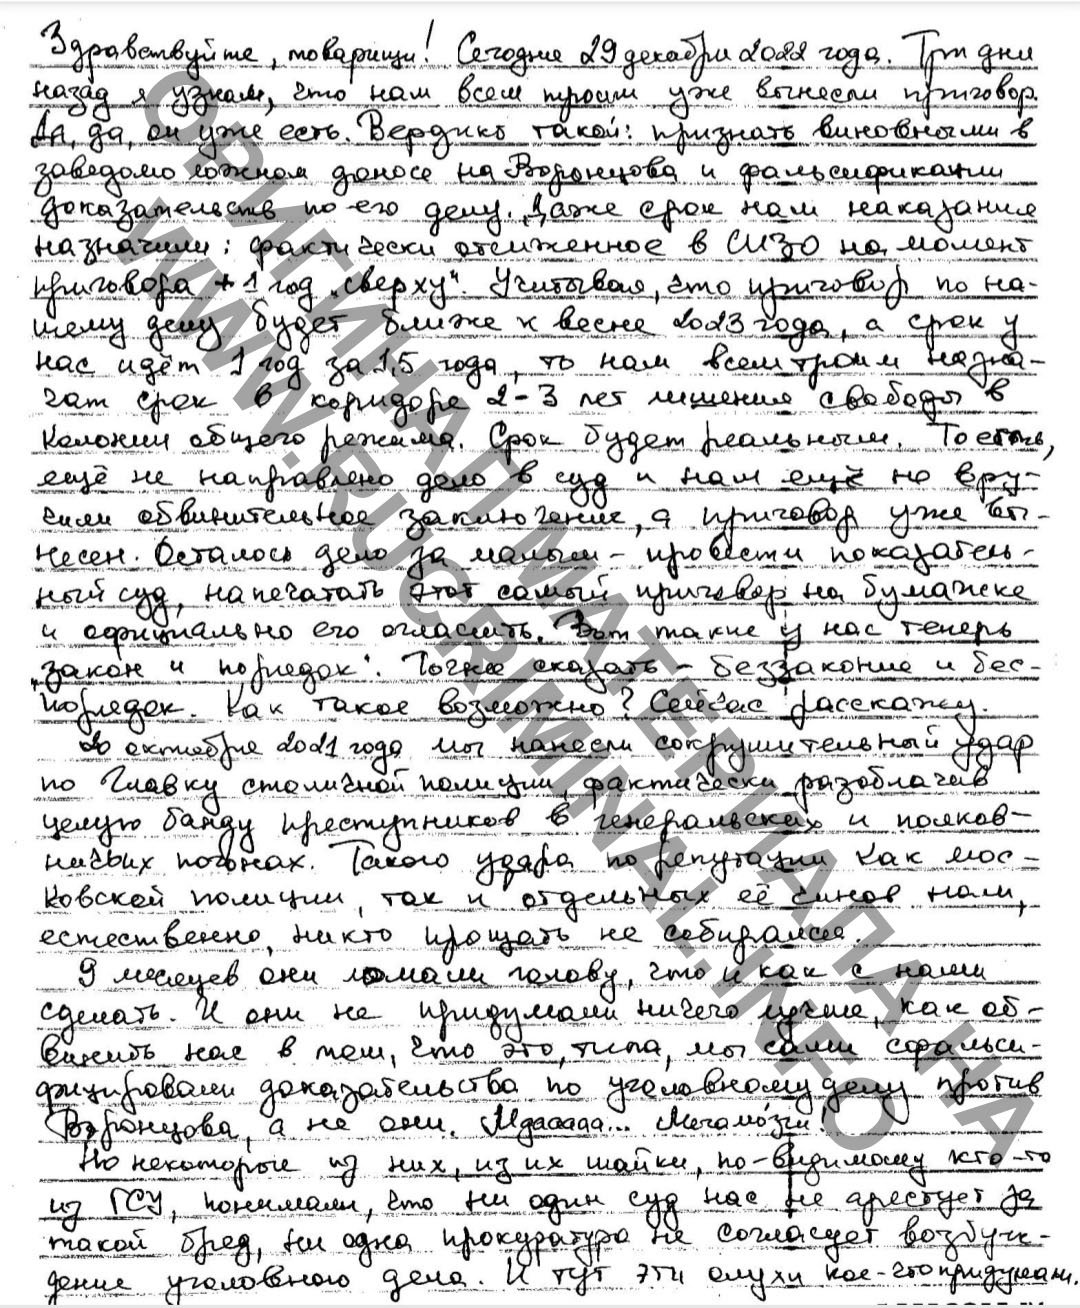 Здравствуйте, товарищи! Сегодня 29 декабря 2022 года. Три дня
назад я узнал, что нам всем троим уже вынесли приговор.
Да, да, он уже есть. Вердикт такой: признать виновными в
заведомо ложном доносе на Воронцова и фальсификации
доказательств по его делу. Даже срок нам наказания
назначили: фактически отсиженное в СИЗО на момент
приговора + 1 год „сверху". Учитывая, что приговор по на-
шему делу будет ближе к весне 2023 года, а срок у
нас идёт 1 год за 1,5 года, то нам всем троим назна-
чат срок в коридоре 2-3 лет лишения свободы в
колонии общего режима. Срок будет реальным. То есть,
ещё не направлено дело в суд и нам ещё не вру-
чили обвинительное заключение, а приговор уже вы-
несен. Осталось дело за малым - провести показатель-
ный суд, напечатать этот самый приговор на бумажке
и официально его огласить. Вот такие у нас теперь
„закон и порядок". Точнее сказать - беззаконие и бес-
порядок. Как такое возможно? Сейчас расскажу.
20 октября 2021 года мы нанесли сокрушительный удар
по Главку столичной полиции, фактически разоблачив
целую банду преступников в генеральских и полков-
ничьих погонах. Такого удара по репутации как мос-
ковской полиции, так и отдельных её чинов нам,
естественно, никто прощать не собирался.
9 месяцев они ломали голову, что и как с нами
сделать. И они не придумали ничего лучше, как об-
винить нас в том, что это, типа, мы сами сфальси-
фицировали доказательства по уголовному делу против
Воронцова, а не они. Мдааааа... Мегамо́зги!
Но некоторые из них, из их шайки, по-видимому кто-то
из ГСУ, понимали, что ни один суд нас не арестует за
такой бред, ни одна прокуратура не согласует возбуж-
дение уголовного дела. И тут эти олухи кое-что придумали.
ОРИГИНАЛ МАТЕРИАЛА НА
WWW.RUCRIMINAL.INFO